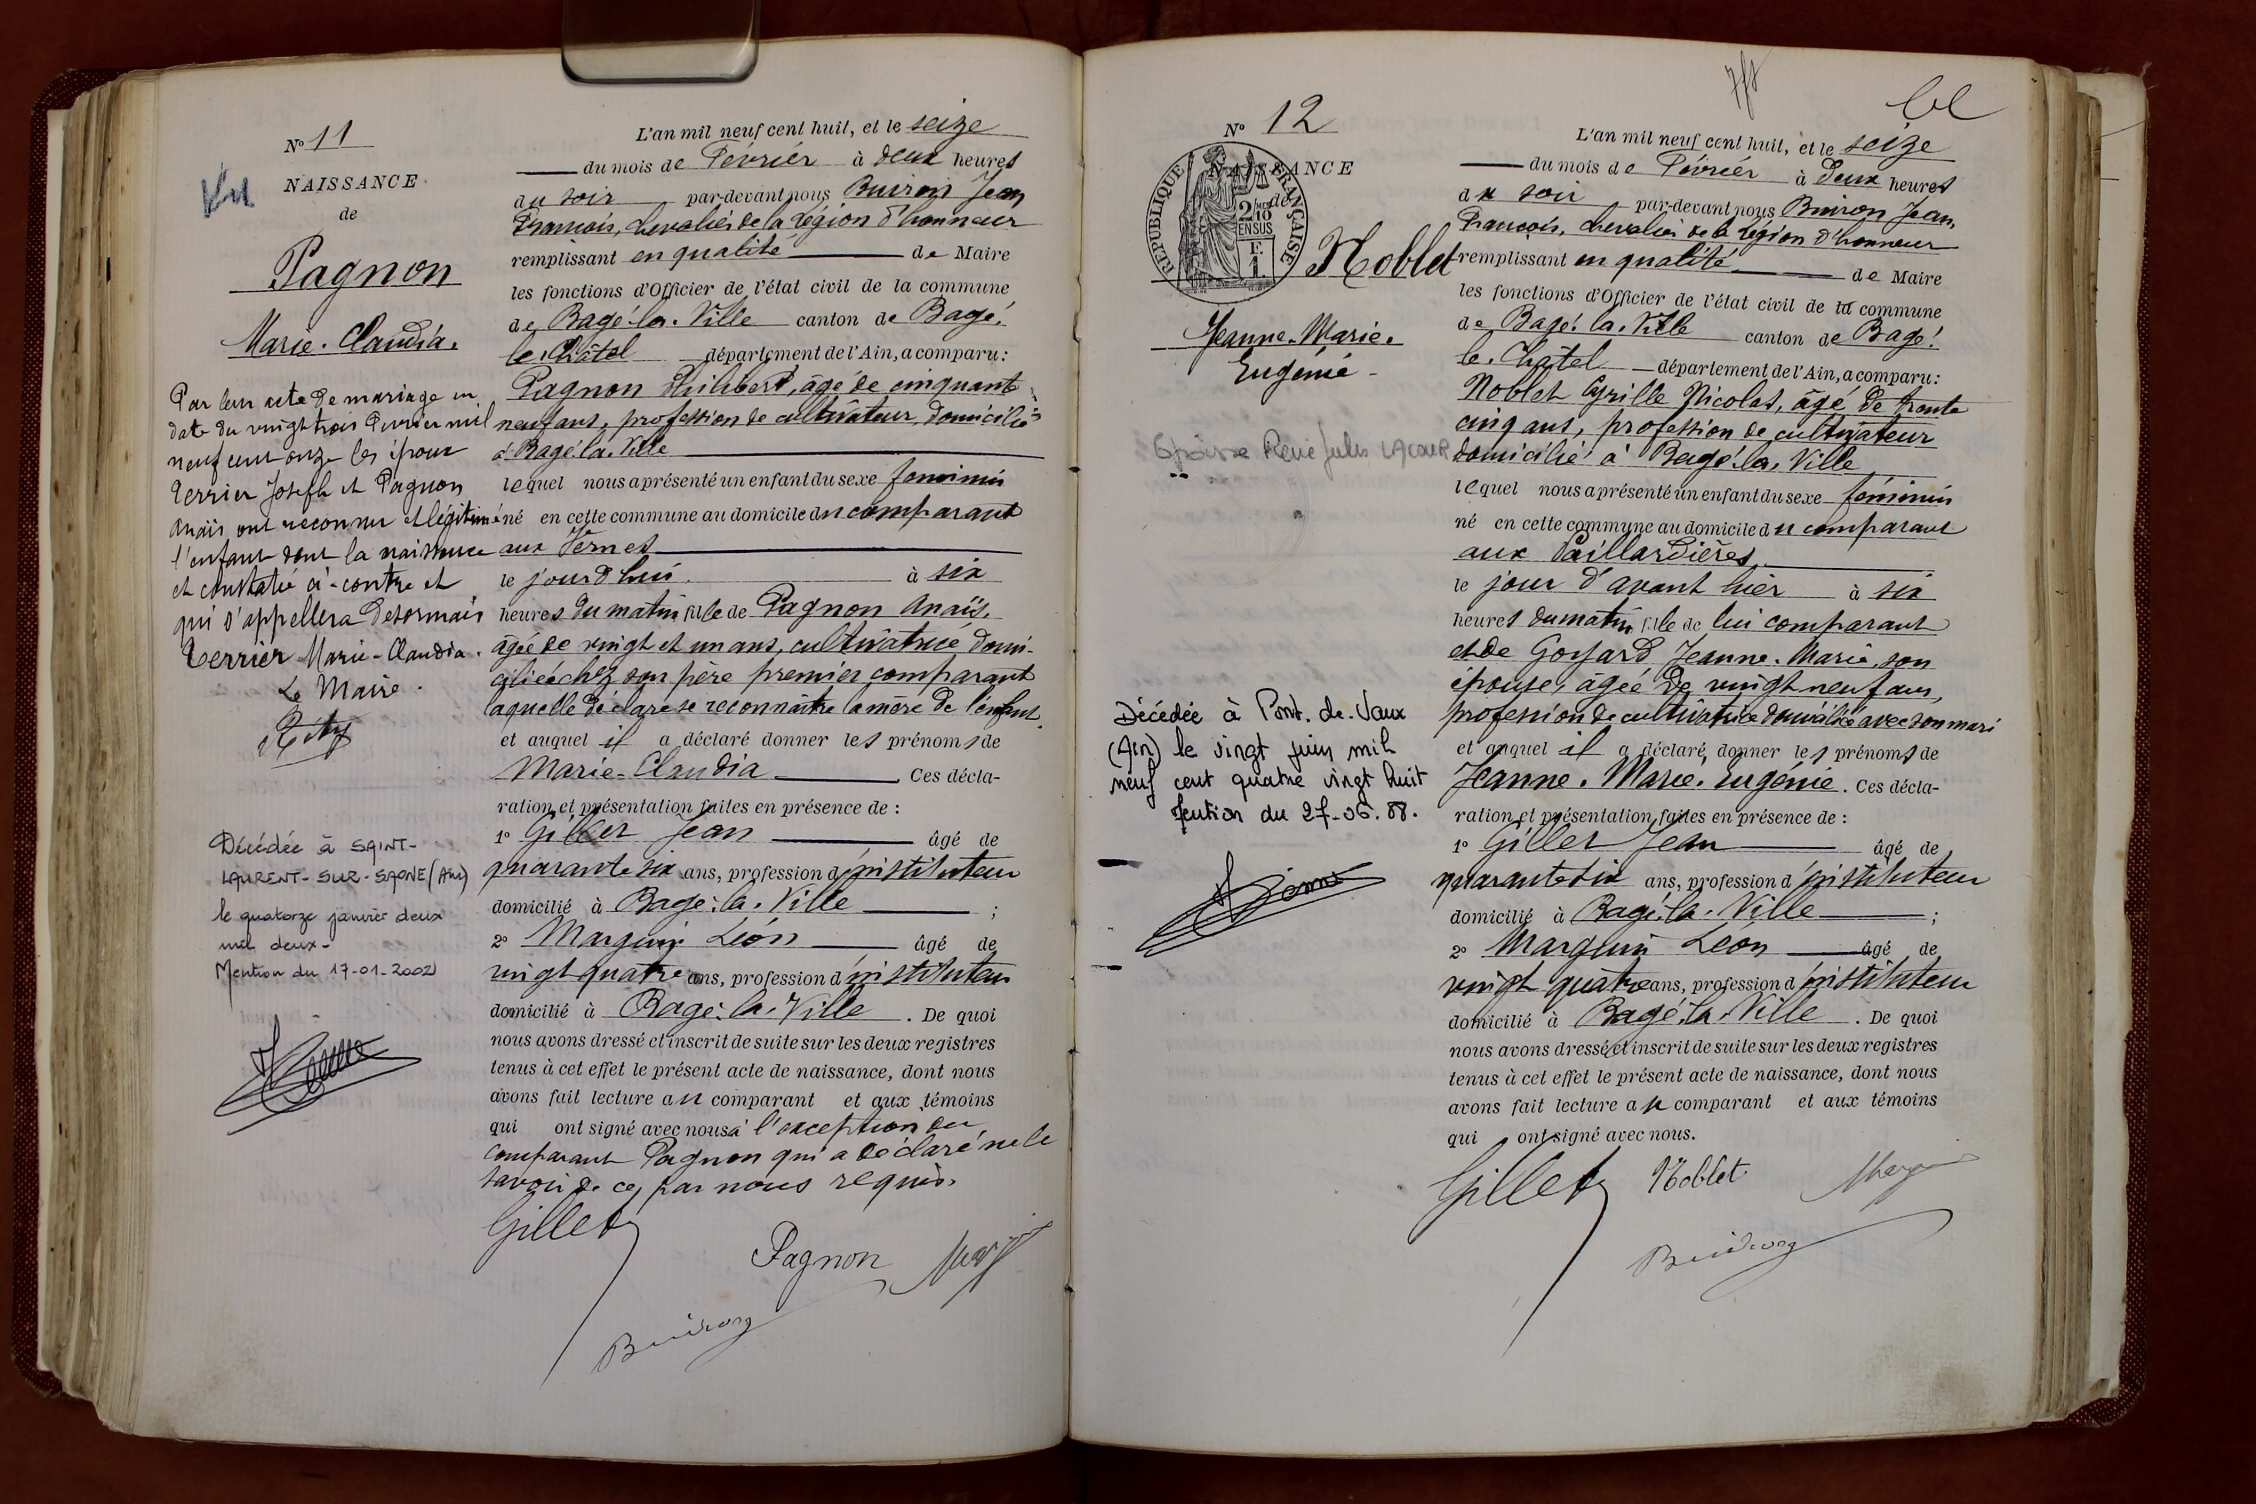 N° 11
Vu
NAISSANCE
de
Pagnon
Marie-Claudia.
Par leur acte de mariage en
date du vingt trois Février mil
neuf cent onze les époux
Terrier Joseph et Pagnon
Anaïs ont reconnu et légitimé
l'enfant dont la naissance
est constatée ci-contre et
qui s'appellera désormais
Terrier Marie-Claudia.
Le Maire.
Décédée à SAINT-
LAURENT-SUR-SAONE (Ain)
le quatorze janvier deux
mil deux-
Mention du 17-01-2002
L'an mil neuf cent huit, et le seize
du mois de Février à deux heures
du soir par-devant nous Buiron Jean
François, chevalier de la légion d'honneur
remplissant en qualité de Maire
les fonctions d'Officier de l'état civil de la commune
de Bagé-la-Ville canton de Bagé-
le-Châtel département de l'Ain, a comparu:
Pagnon Philibert, âgé de cinquante
neuf ans, profession de cultivateur, domicilié
à Bagé-la-Ville
lequel nous a présenté un enfant du sexe féminin
né en cette commune au domicile du comparant
aux Vernes
le jourd'hui à six
heures du matin fille de Pagnon Anaïs,
âgée de vingt et un ans, cultivatrice, domi-
ciliée chez son père premier comparant
laquelle déclare se reconnaître la mère de l'enfant.
et auquel il a déclaré donner les prénoms de
Marie-Claudia Ces décla-
ration et présentation faites en présence de :
1° Gillet Jean âgé de
quarante six ans, profession d'instituteur
domicilié à Bagé-la-Ville ;
2° Marguin Léon âgé de
vingt quatre ans, profession d'instituteur
domicilié à Bagé-la-Ville . De quoi
nous avons dressé et inscrit de suite sur les deux registres
tenus à cet effet le présent acte de naissance, dont nous
avons fait lecture au comparant et aux témoins
qui ont signé avec nous à l'exception du
comparant Pagnon qui a déclaré ne le
savoir de ce, par nous requis.
Gillet
Pagnon
Buiron
N° 12
NAISSANCE
de
RÉPUBLIQUE FRANÇAISE
2/10 EN SUS
F. 1.
Noblet
Jeanne-Marie-
Eugénie
Épouse René Jules LACOUR
Décédée à Pont-de-Vaux
(Ain) le vingt juin mil
neuf cent quatre vingt huit
Mention du 27-06.88.
L'an mil neuf cent huit, et le seize
du mois de Février à deux heures
du soir par-devant nous Buiron Jean
François, chevalier de la légion d'honneur
remplissant en qualité de Maire
les fonctions d'Officier de l'état civil de la commune
de Bagé-la-Ville canton de Bagé-
le-Châtel département de l'Ain, a comparu:
Noblet Cyrille Nicolas, âgé de trente
cinq ans, profession de cultivateur
domicilié à Bagé-la-Ville
lequel nous a présenté un enfant du sexe féminin
né en cette commune au domicile du comparant
aux Paillardières
le jour d'avant hier à six
heures du matin fille de lui comparant
et de Goyard Jeanne-Marie, son
épouse, âgée de vingt neuf ans,
profession de cultivatrice domiciliée avec son mari
et auquel il a déclaré donner les prénoms de
Jeanne-Marie-Eugénie. Ces décla-
ration et présentation faites en présence de :
1° Gillet Jean âgé de
quarante six ans, profession d'instituteur
domicilié à Bagé-la-Ville ;
2° Marguin Léon âgé de
vingt quatre ans, profession d'instituteur
domicilié à Bagé-la-Ville . De quoi
nous avons dressé et inscrit de suite sur les deux registres
tenus à cet effet le présent acte de naissance, dont nous
avons fait lecture au comparant et aux témoins
qui ont signé avec nous.
Gillet Noblet
Buiron